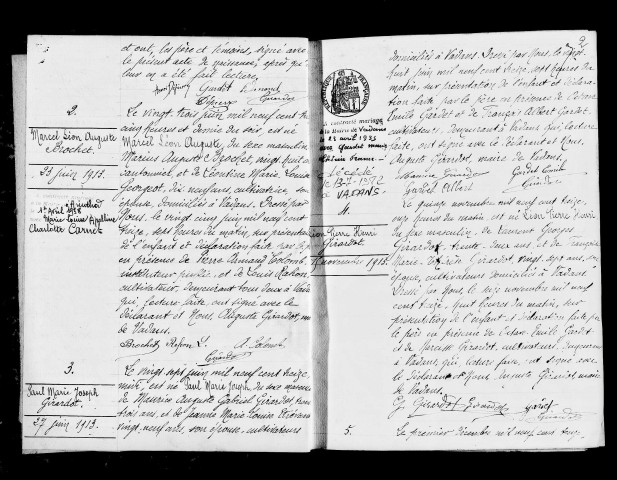 et ont, les père et témoins, signé avec
le présent acte de naissance, après que
leur en a été fait lecture.
Girardot
2.
Marcel Léon Auguste
Brochet.
23 juin 1913.
1er Avril 1938
Marie Louise Apolline
Charlotte Carnet
Le vingt trois juin mil neuf cent treize
cinq heures et demie du soir, est né
Marcel Léon Auguste du sexe masculin
Marius Auguste Brochet, vingt huit ans
cantonnier, et de Léontine Marie Louise
Georgeot, dix neuf ans, cultivatrice, son
épouse, domiciliés à Vadans. Dressé par
Nous, le vingt cinq juin mil neuf cent
treize, sept heures du matin, sur présentation
de l'enfant et déclaration faite par le père
en présence de Pierre Armand Colomb,
instituteur public, et de Louis
cultivateur, demeurant tous deux à Vadans
qui, lecture faite, ont signé avec le
déclarant et Nous, Auguste Girardot, maire
de Vadans.
Brochet A. Colomb
Girardot
3.
Paul Marie Joseph
Girardot.
27 juin 1913.
Le vingt sept juin mil neuf cent treize
midi, est né Paul Marie Joseph du sexe masculin
de Maurice Auguste Gabriel Girardot, trente
trois ans, et de Jeanne Marie Louise
vingt neuf ans, son épouse, cultivateurs
2
domiciliés à Vadans. Dressé par Nous, le vingt
huit juin mil neuf cent treize, sept heures du
matin, sur présentation de l'enfant et déclaration
faite par le père en présence de
Emile Gardet et de François Albert Gardet,
cultivateurs, demeurant à Vadans qui, lecture
faite, ont signé avec le déclarant et Nous
Auguste Girardot, maire de Vadans.
Girardot Gardet Emile
Gardet Albert Girardot
a contracté mariage
à la Mairie de Vadans
22 avril 1935
avec Gardet
Décédé
à VADANS
4.
Léon Pierre Henri
Girardot.
novembre 1913.
Le quinze novembre mil neuf cent treize,
heures du matin est né Léon Pierre Henri
du sexe masculin, de Laurent Georges
Girardot, trente deux ans, et de
Marie Girardot, vingt sept ans, son
épouse, cultivateurs domiciliés à Vadans.
Dressé par Nous le seize novembre mil neuf
cent treize, huit heures du matin, sur
présentation de l'enfant et déclaration faite par
le père en présence de Emile Gardet
et de Narcisse Girardot, cultivateurs, demeurant
à Vadans, qui, lecture faite, ont signé avec
le déclarant et Nous Auguste Girardot, maire
de Vadans.
G. Girardot Girardot Gardet
Girardot
5.
Le premier décembre mil neuf cent treize